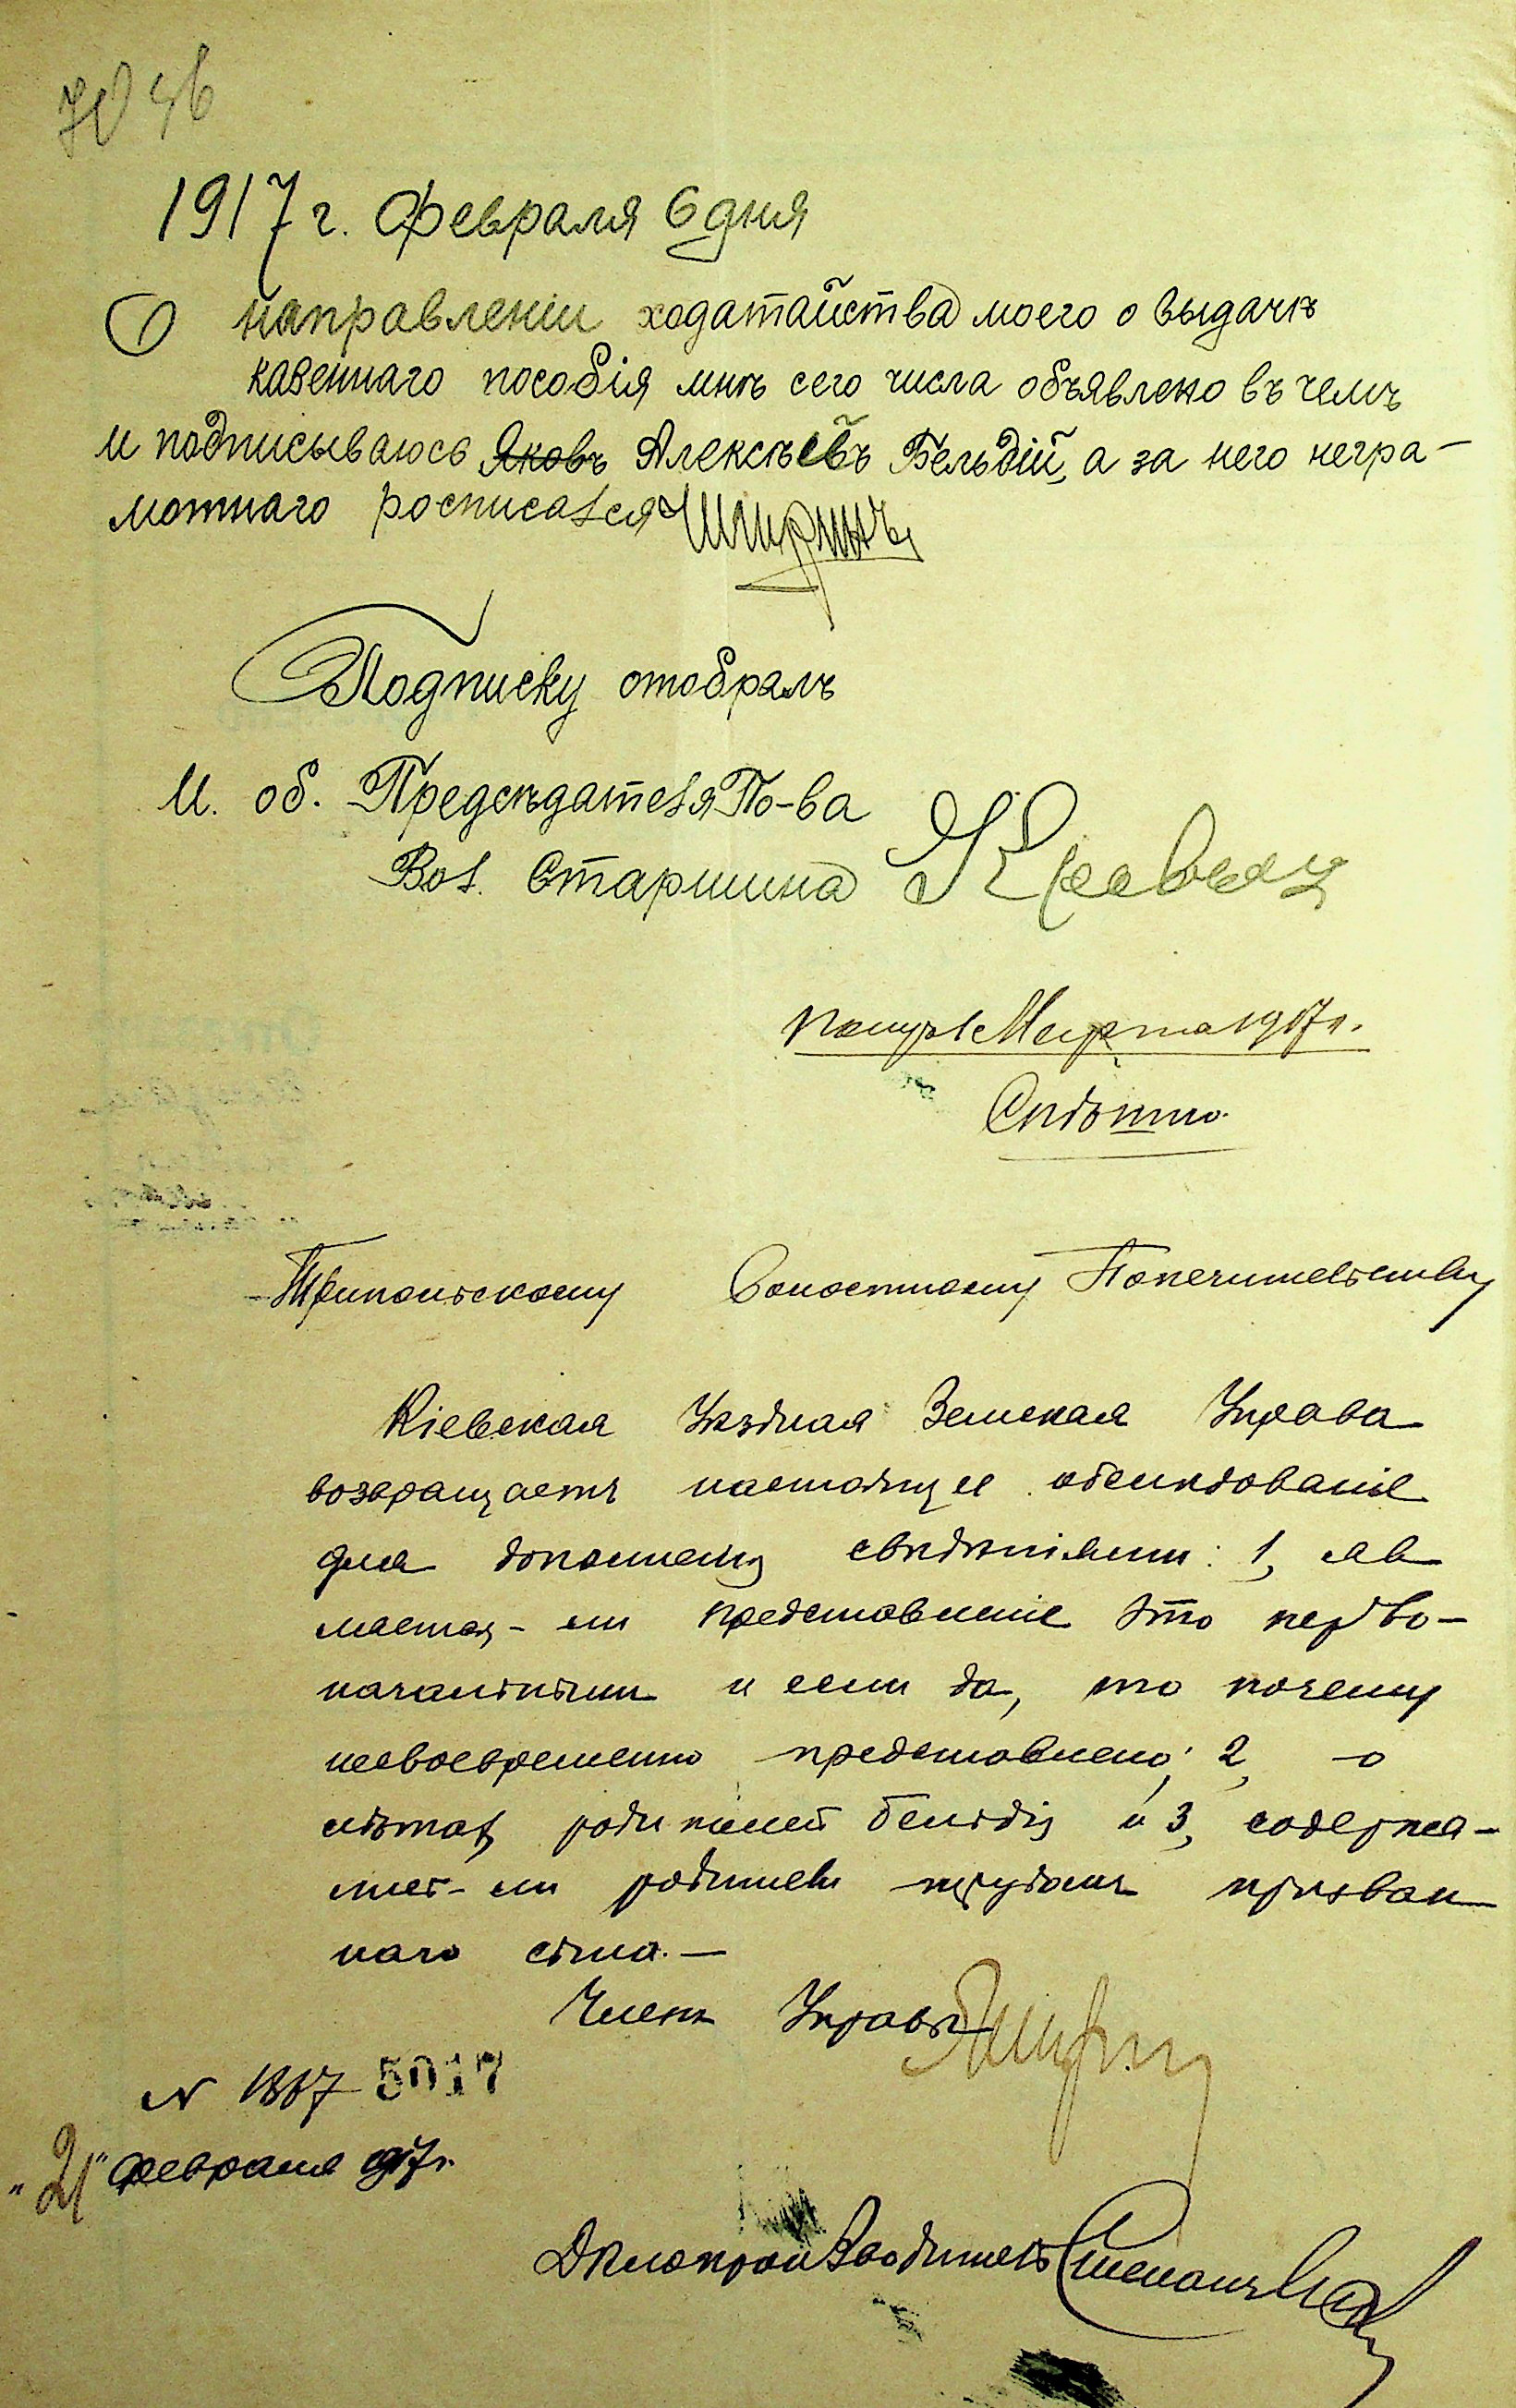 1917 г. Февраля 6 дня
О направленіи ходатайства моего о выдачѣ
казеннаго пособія мнѣ сего числа объявлено въ чемъ
и подписываюсь Яковъ Алексѣевъ Бельдій, а за него негра-
мотнаго росписался
Подписку отобралъ
И. об. Предсѣдателя По-ва
Вол. Старшина
Получ. 1 Марта 1917 г.
Спѣшно.
Трипольскому Волостному Попечительству
Кіевская Уѣздная Земская Управа
возвращаетъ настоящее обслѣдованіе
для дополненія свѣдѣніями: 1, яв
ляется-ли представленіе это перво-
начальнымъ и если да, то почему
несвоевременно представлено; 2, о
лѣтахъ родителей Бельдія и 3, содержа-
лись-ли родители трудомъ призван
наго сына.—
Членъ Управы
N 1867 5017
"21" февраля 1917 г.
Дѣлопроизводитель